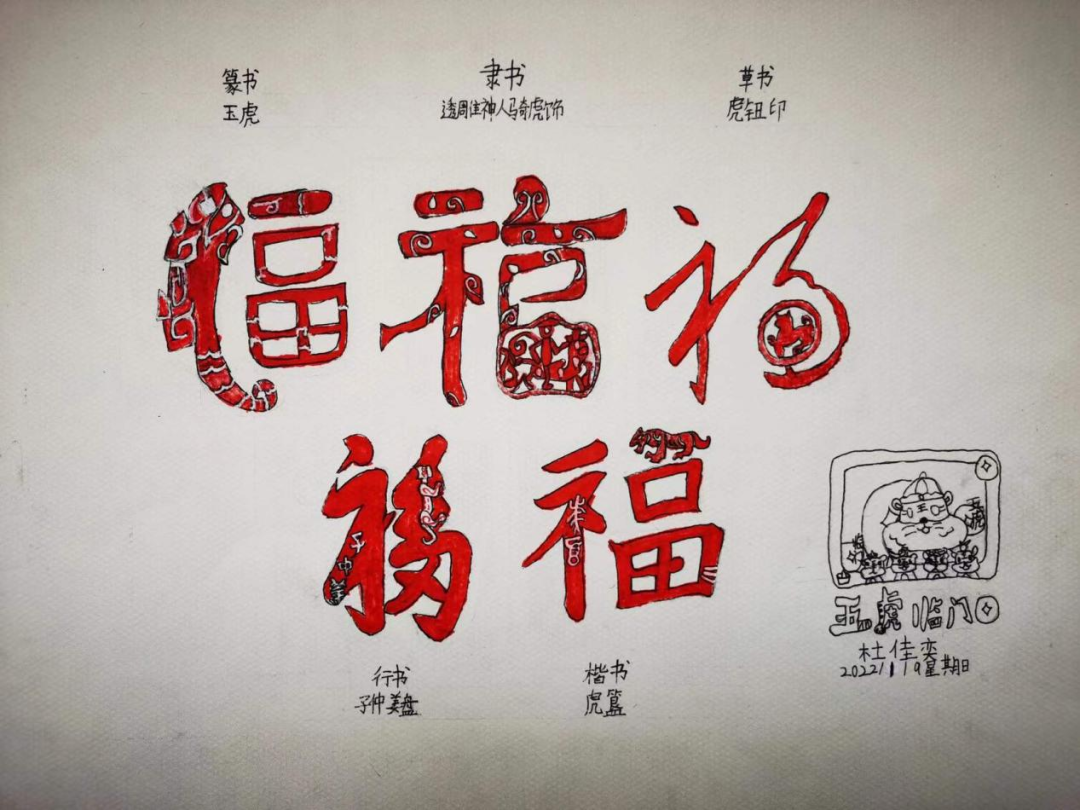 篆书
玉虎
隶书
透周住神人骑虎饰
草书
虎钮印
福 福 福
福 福
行书
子仲姜盘
楷书
虎簋
五虎临门
杜佳奕
2022/1/9星期日